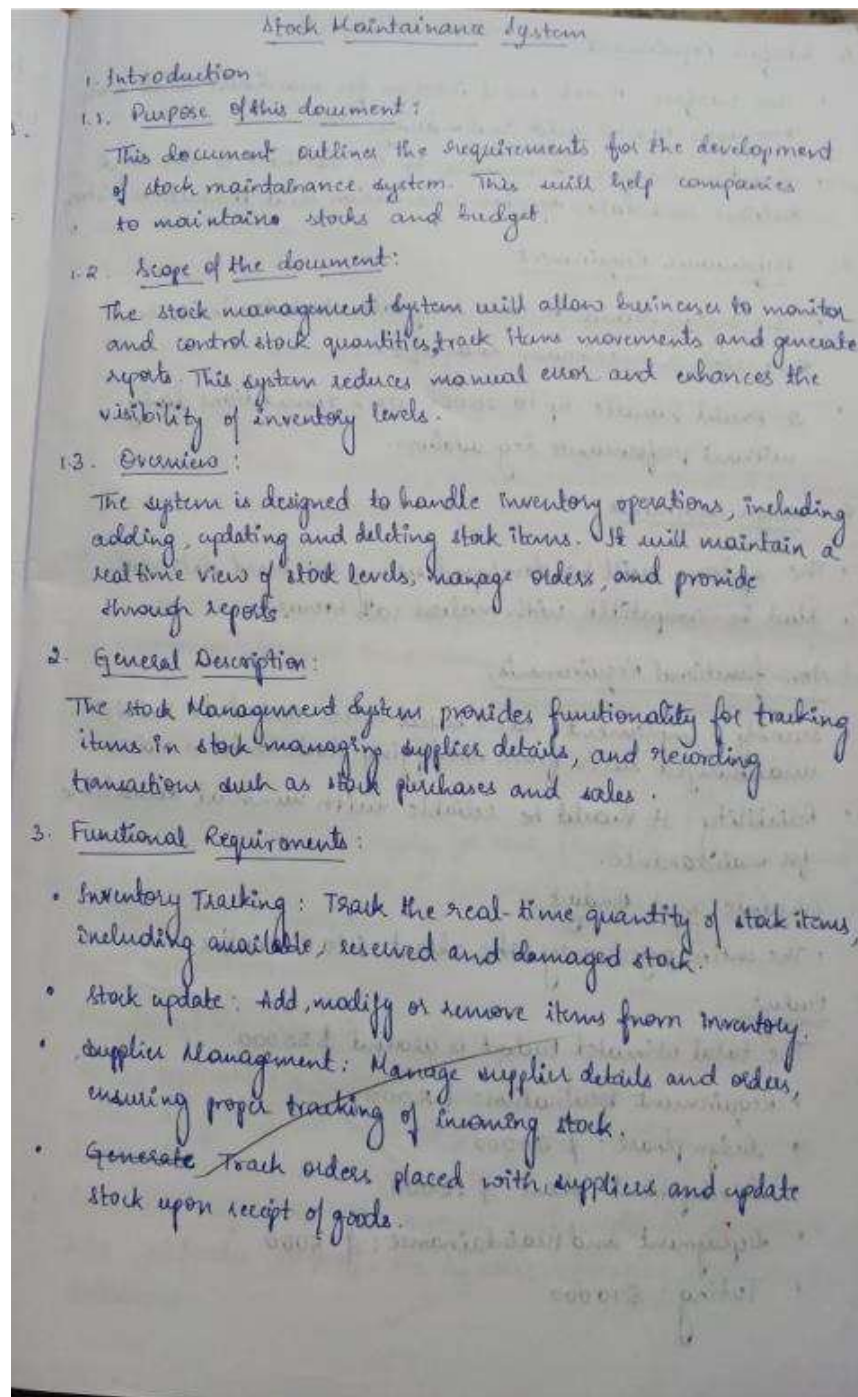 Stock Maintainance System
1. Introduction
1.1. Purpose of this document:
This document outlines the requirements for the development
of stock maintainance system. This will help companies
to maintain stocks and budget.
1.2. Scope of the document:
The stock management system will allow businesses to monitor
and control stock quantities, track items movements and generate
reports. This system reduces manual error and enhances the
visibility of inventory levels.
1.3. Overview:
The system is designed to handle inventory operations, including
adding, updating and deleting stock items. It will maintain a
real time view of stock levels, manage orders, and provide
through reports.
2. General Description:
The stock Management System provides functionality for tracking
items in stock managing supplier details, and recording
transactions such as stock purchases and sales.
3. Functional Requirements:
• Inventory Tracking: Track the real-time quantity of stock items,
including available, reserved and damaged stock.
• Stock update: Add, modify or remove items from inventory.
• Supplier Management: Manage supplier details and orders,
ensuring proper tracking of incoming stock.
• Generate Track orders placed with suppliers and update
stock upon receipt of goods.